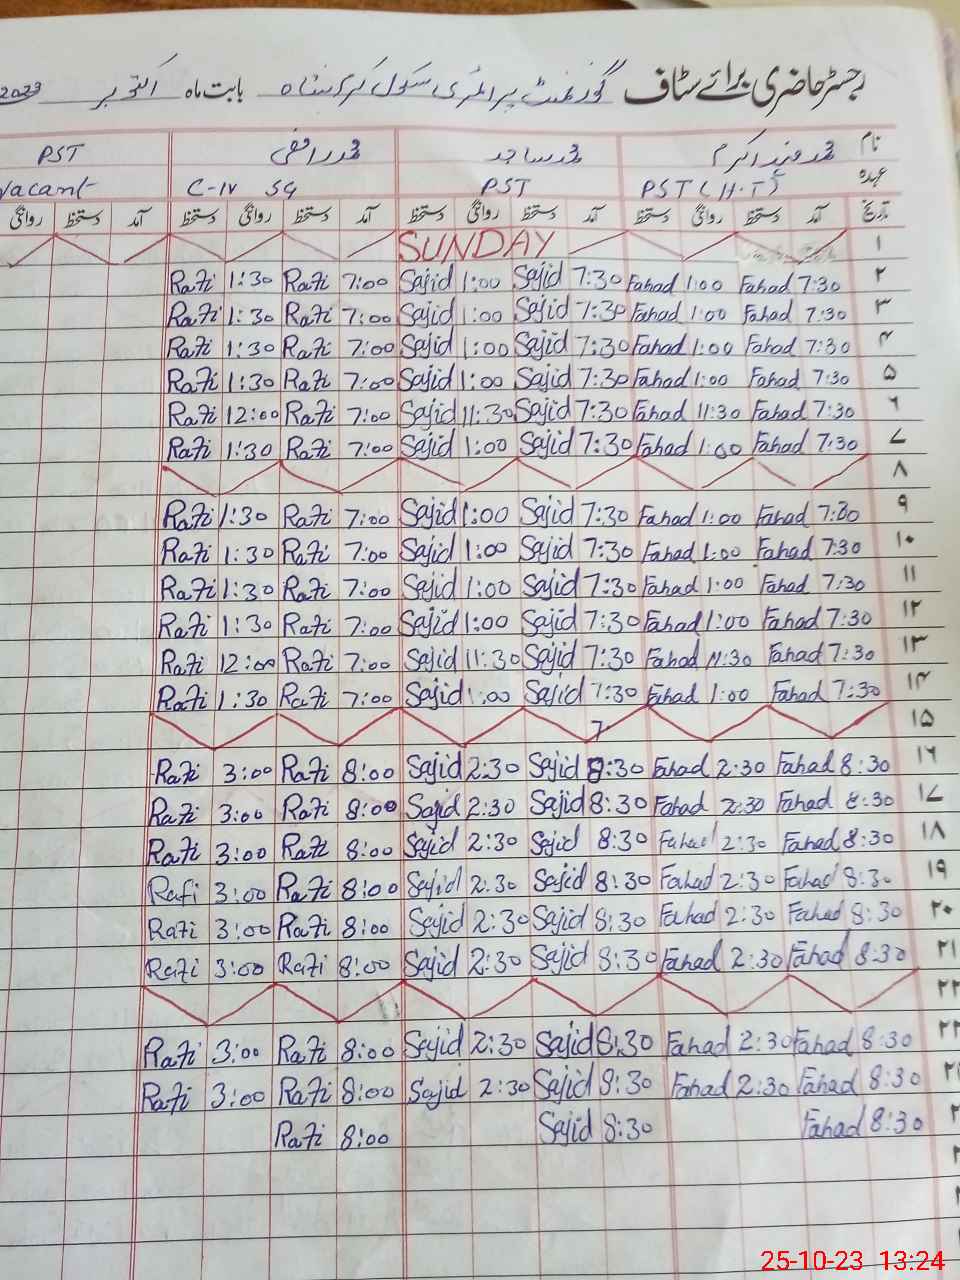 رجسٹر حاضری برائے سٹاف گورنمنٹ پرائمری سکول بابت ماہ اکتوبر 2023
نام محمد ساجد محمد رافع PST
عہدہ PST (H.T) PST C-IV Vacant
تاریخ آمد دستخط روانگی دستخط آمد دستخط روانگی دستخط آمد دستخط روانگی دستخط آمد دستخط روانگی
SUNDAY ۱
Rafi 1:30 Rafi 7:00 Sajid 1:00 Sajid 7:30 Fahad 1:00 Fahad 7:30 ۲
Rafi 1:30 Rafi 7:00 Sajid 1:00 Sajid 7:30 Fahad 1:00 Fahad 7:30 ۳
Rafi 1:30 Rafi 7:00 Sajid 1:00 Sajid 7:30 Fahad 1:00 Fahad 7:30 ۴
Rafi 1:30 Rafi 7:00 Sajid 1:00 Sajid 7:30 Fahad 1:00 Fahad 7:30 ۵
Rafi 12:00 Rafi 7:00 Sajid 11:30 Sajid 7:30 Fahad 11:30 Fahad 7:30 ۶
Rafi 1:30 Rafi 7:00 Sajid 1:00 Sajid 7:30 Fahad 1:00 Fahad 7:30 ۷
۸
Rafi 1:30 Rafi 7:00 Sajid 1:00 Sajid 7:30 Fahad 1:00 Fahad 7:30 ۹
Rafi 1:30 Rafi 7:00 Sajid 1:00 Sajid 7:30 Fahad 1:00 Fahad 7:30 ۱۰
Rafi 1:30 Rafi 7:00 Sajid 1:00 Sajid 7:30 Fahad 1:00 Fahad 7:30 ۱۱
Rafi 1:30 Rafi 7:00 Sajid 1:00 Sajid 7:30 Fahad 1:00 Fahad 7:30 ۱۲
Rafi 12:00 Rafi 7:00 Sajid 11:30 Sajid 7:30 Fahad 11:30 Fahad 7:30 ۱۳
Rafi 1:30 Rafi 7:00 Sajid 1:00 Sajid 7:30 Fahad 1:00 Fahad 7:30 ۱۴
۱۵
Rafi 3:00 Rafi 8:00 Sajid 2:30 Sajid 8:30 Fahad 2:30 Fahad 8:30 ۱۶
Rafi 3:00 Rafi 8:00 Sajid 2:30 Sajid 8:30 Fahad 2:30 Fahad 8:30 ۱۷
Rafi 3:00 Rafi 8:00 Sajid 2:30 Sajid 8:30 Fahad 2:30 Fahad 8:30 ۱۸
Rafi 3:00 Rafi 8:00 Sajid 2:30 Sajid 8:30 Fahad 2:30 Fahad 8:30 ۱۹
Rafi 3:00 Rafi 8:00 Sajid 2:30 Sajid 8:30 Fahad 2:30 Fahad 8:30 ۲۰
Rafi 3:00 Rafi 8:00 Sajid 2:30 Sajid 8:30 Fahad 2:30 Fahad 8:30 ۲۱
۲۲
Rafi 3:00 Rafi 8:00 Sajid 2:30 Sajid 8:30 Fahad 2:30 Fahad 8:30 ۲۳
Rafi 3:00 Rafi 8:00 Sajid 2:30 Sajid 8:30 Fahad 2:30 Fahad 8:30
Rafi 8:00 Sajid 8:30 Fahad 8:30
25-10-23 13:24